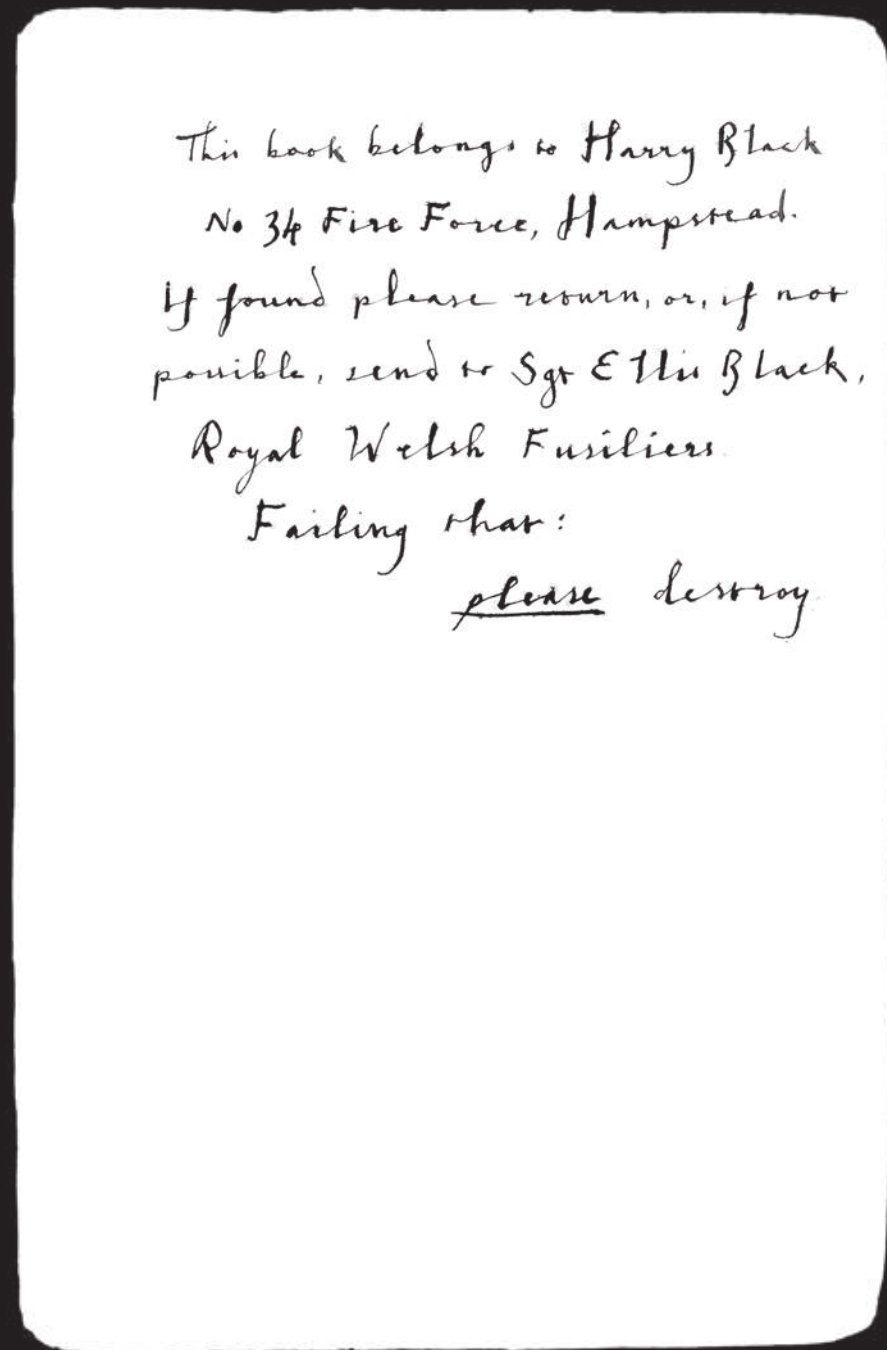 This book belongs to Harry Black
No 34 Fire Force, Hampstead.
If found please return, or, if not
possible, send to Sgt Ellis Black,
Royal Welsh Fusiliers
Failing that:
please destroy